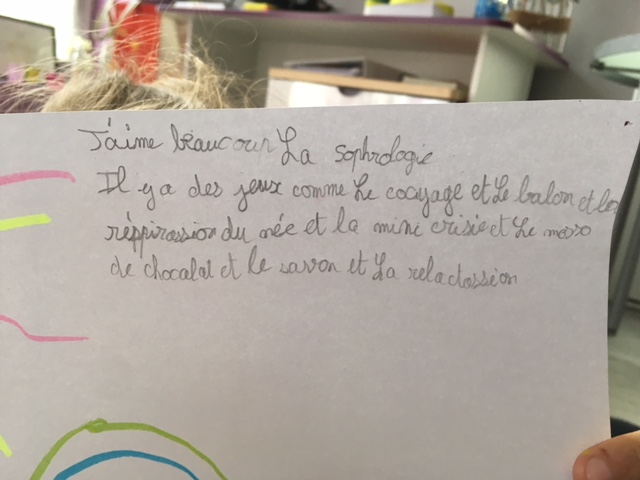 J'aime beaucour La sophrologie
Il y a des jeux comme Le cocyage et Le balon et la
réppirassion du née et la mini crisie et Le moro
de chocalat et le savon et La reladossion